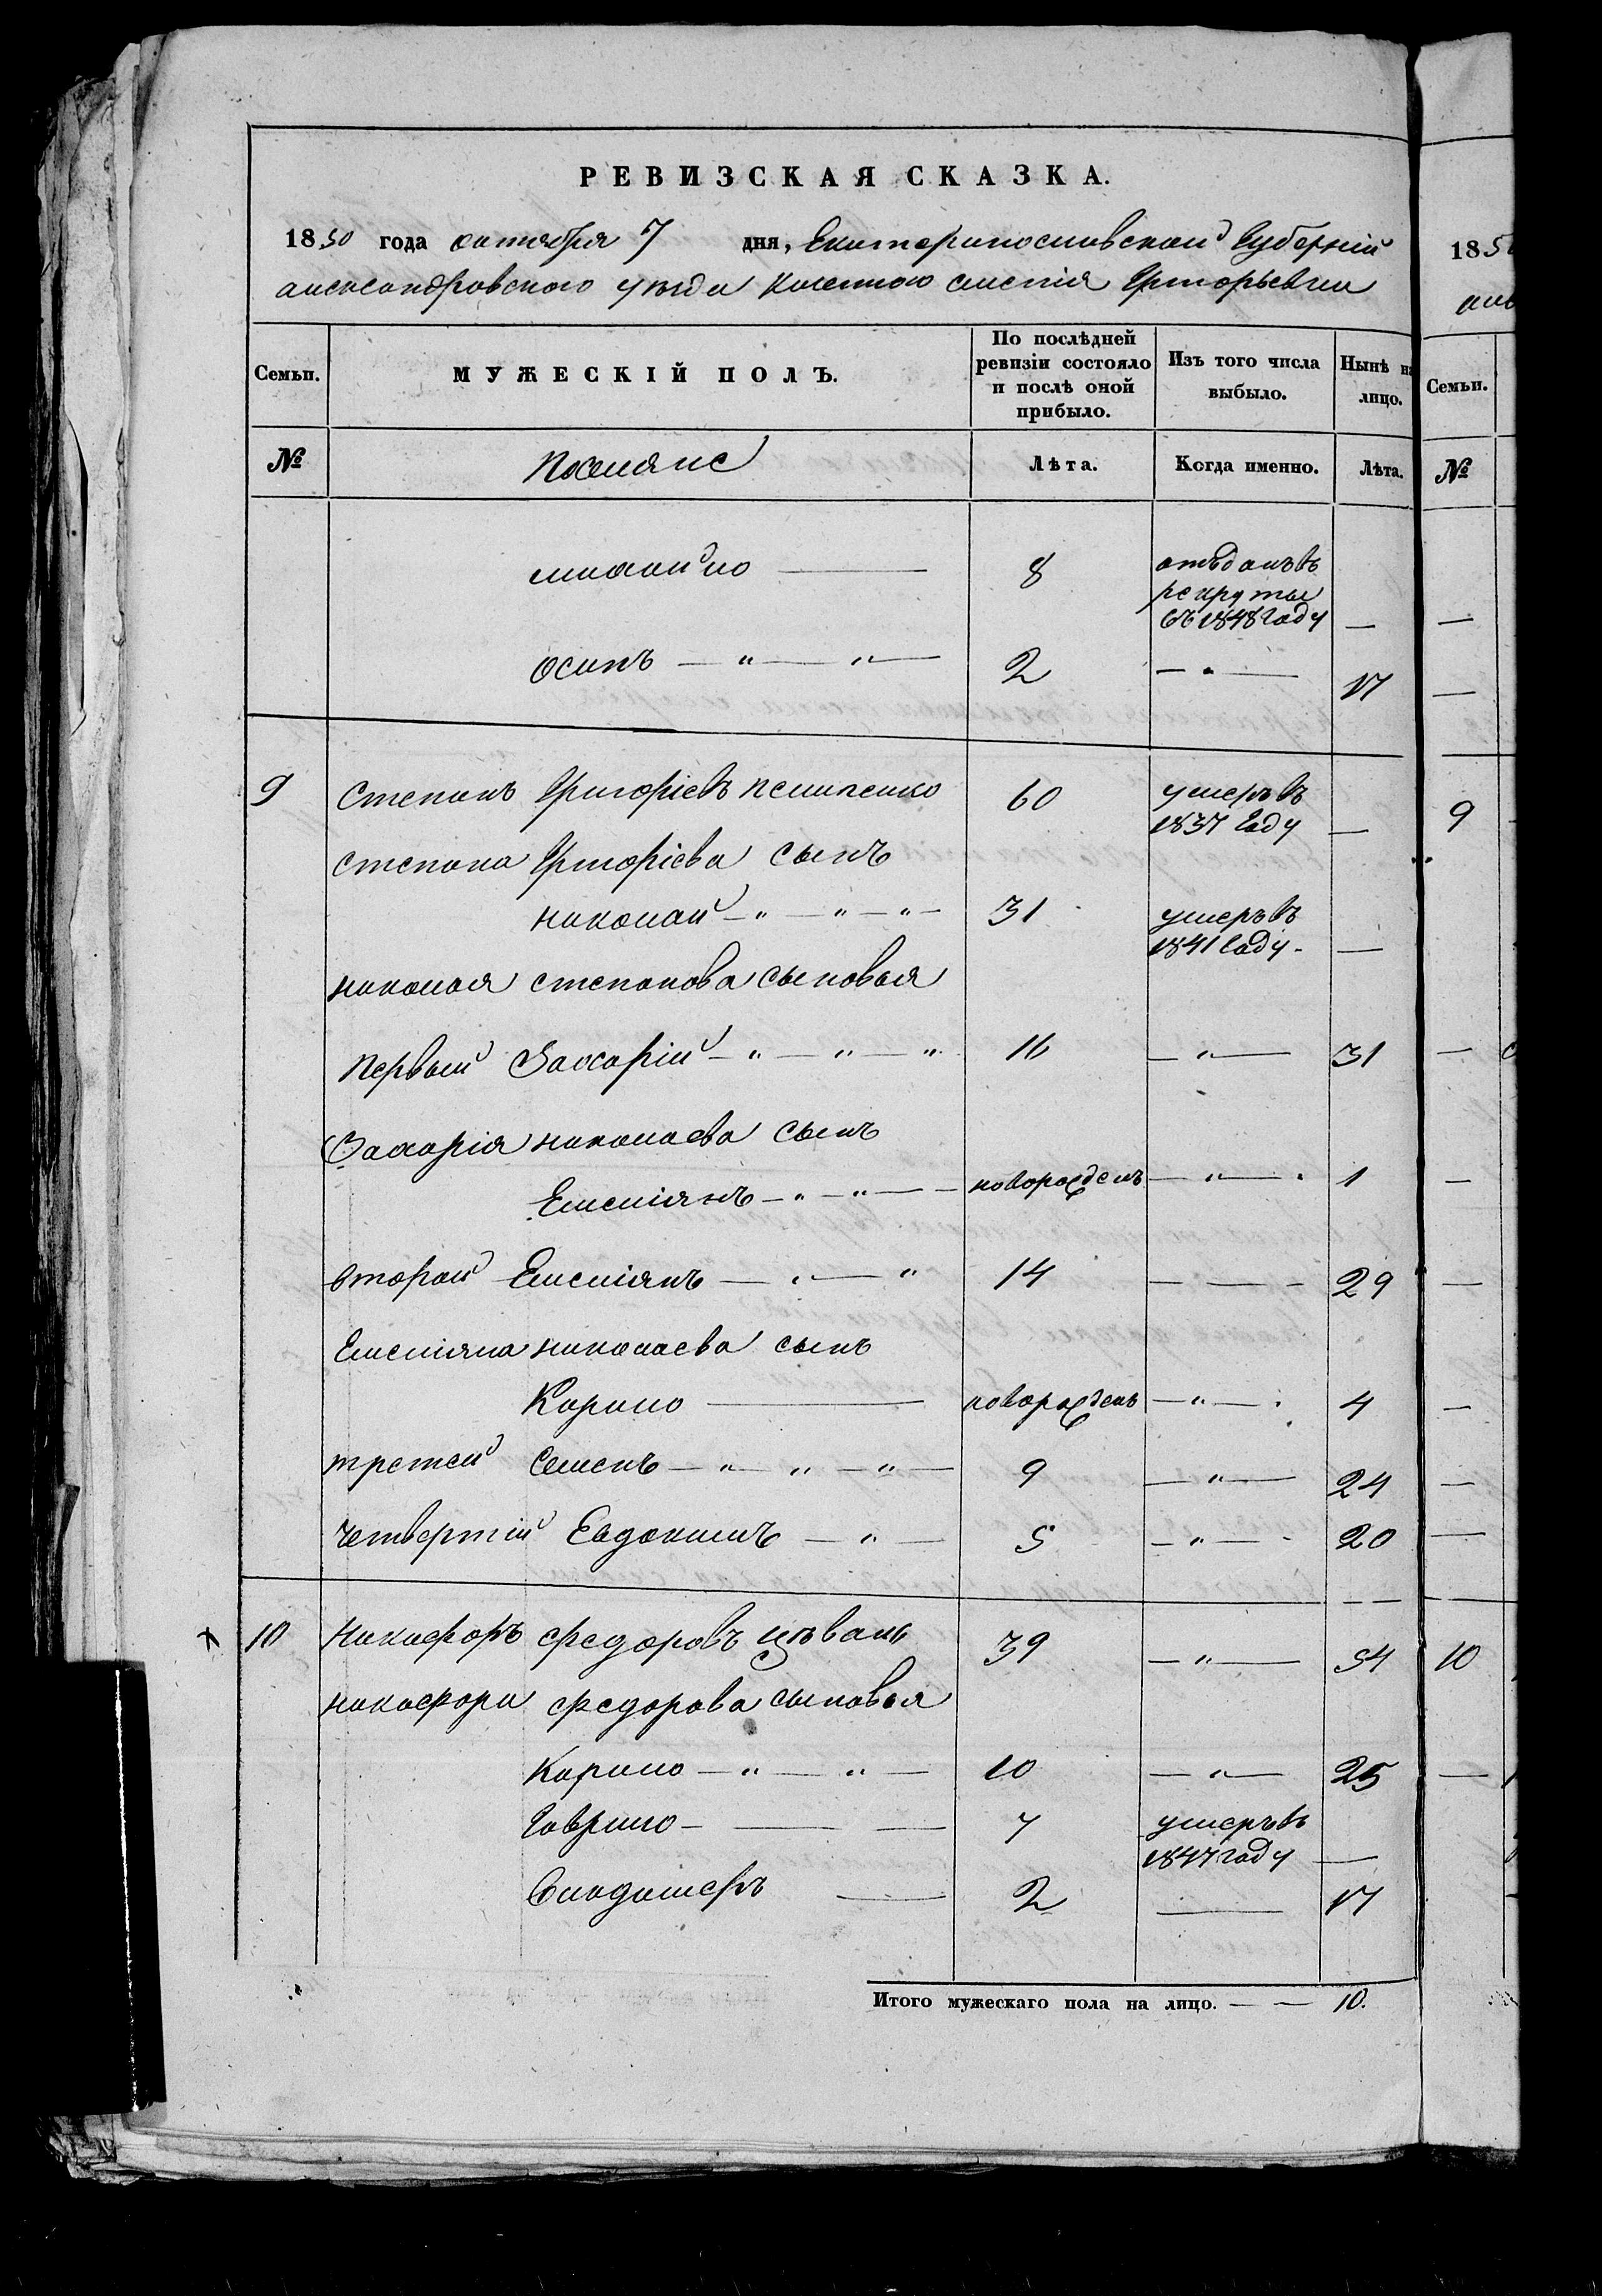 РЕВИЗСКАЯ СКАЗКА.
1850 года октября 7 дня, Екатеринославской Губерній
александровского уезда Казенного селенія Григорьевки
Семьи. МУЖЕСКІЙ ПОЛЪ. По послѣдней ревизіи состояло и послѣ оной прибыло. Изъ того числа выбыло. Нынѣ на лицо.
№ Поселяне Лѣта. Когда именно. Лѣта.
михайло — 8 отъданъ въ
рекруты
въ 1848 году —
осипъ — " — " — 2 — " — 17
9 степанъ Григоріевъ 60 умеръ въ
1837 году —
степана Григоріева сынъ
николай — " — " — " — 31 умеръ въ
1841 году —
николая степанова сыновья
первый Захарій — " — " — " 16 — " — 31
Захарія николаева сынъ
Емеліянъ — " — " — — новорожденъ — " — 1
второй Емеліянъ — " — " 14 — — 29
Емеліяна николаева сынъ
Кирило — новорожденъ — " — 4
третей Семенъ — " — " — " — 9 — " — 24
четвертій Евдокимъ — " — 5 — " — 20
10 Никифоръ федоровъ цѣвань 39 — " — 54
никифора федорова сыновья
Кирило — " — " — 10 — " — 25
Гаврило — — — 7 умеръ въ
1847 году —
Владимеръ — 2 — 17
Итого мужескаго пола на лицо. — — 10.
185
Семьи.
№
9
10